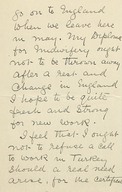 go on to England
when we leave here
in May. My Diploma
for Midwifery ought
not to be thrown away
after a rest and
change in England
I hope to be quite
fresh and strong
for new work.
I feel that I ought
not to refuse a call
to work in Turkey
should a real need
arise, for the certified